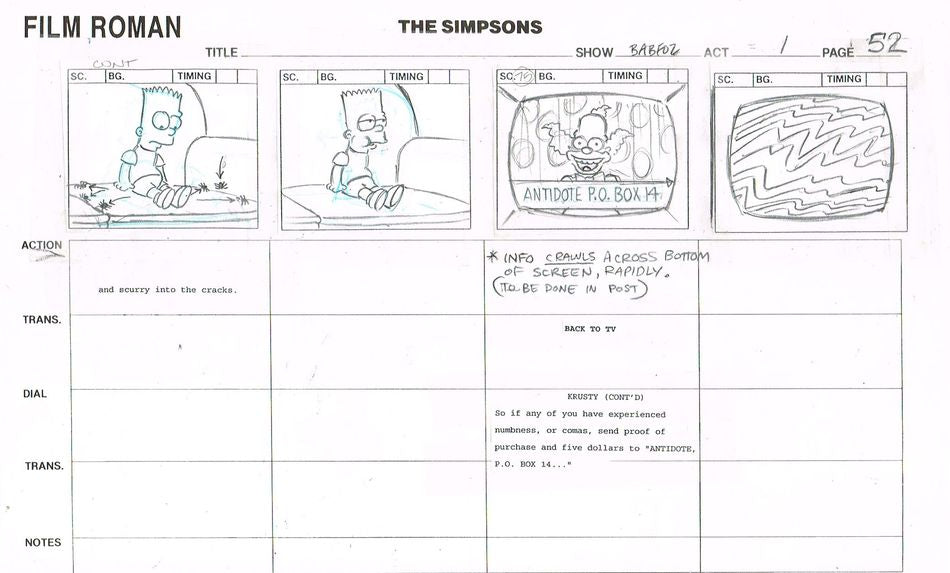 FILM ROMAN
THE SIMPSONS
TITLE SHOW BABF02 ACT 1 PAGE 52
CONT
SC. BG. TIMING
SC. BG. TIMING
SC. 75 BG. TIMING
SC. BG. TIMING
ANTIDOTE P.O. BOX 14.
ACTION
and scurry into the cracks.
* INFO CRAWLS ACROSS BOTTOM
OF SCREEN, RAPIDLY.
(TO BE DONE IN POST)
TRANS.
BACK TO TV
DIAL
KRUSTY (CONT'D)
So if any of you have experienced
numbness, or comas, send proof of
purchase and five dollars to "ANTIDOTE,
P.O. BOX 14..."
TRANS.
NOTES